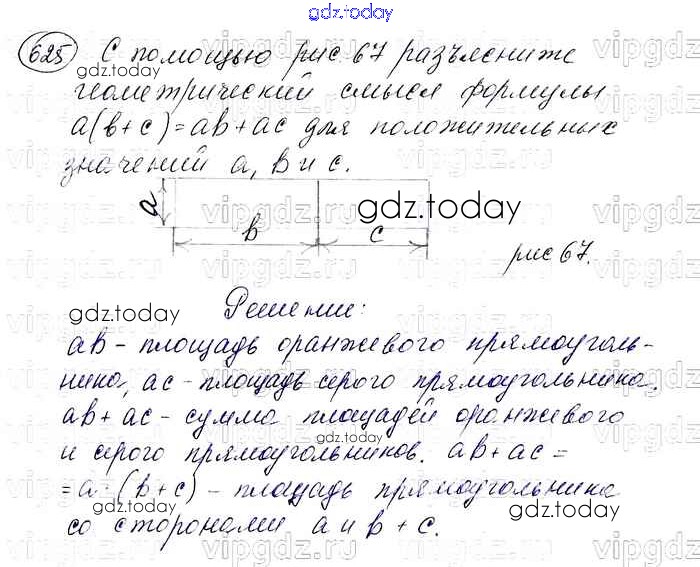 gdz.today
625 С помощью рис. 67 разъясните
геометрический смысл формулы
a(b+c)=ab+ac для положительных
значений a, b и c.
a
b
c
рис 67.
Решение:
ab - площадь оранжевого прямоуголь-
ника, ac - площадь серого прямоугольника.
ab + ac - сумма площадей оранжевого
и серого прямоугольников. ab + ac =
= a · (b + c) - площадь прямоугольника
со сторонами a и b + c.
gdz.today
gdz.today
gdz.today
gdz.today
gdz.today
gdz.today
vipgdz.ru